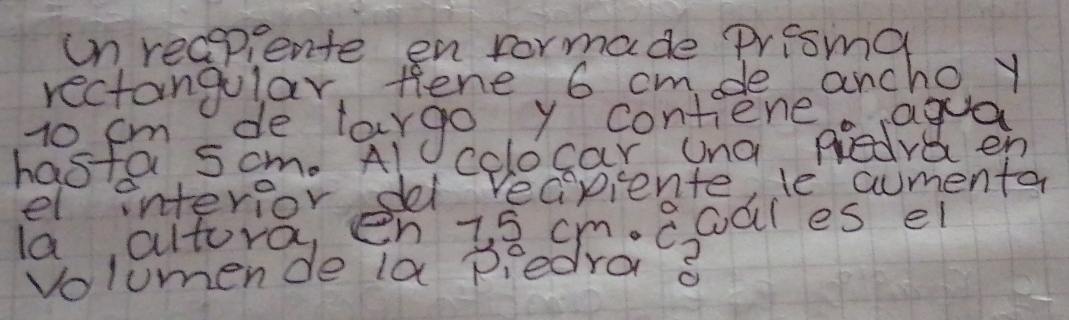 un recipiente en forma de Prisma
rectangular tiene 6 cm de ancho y
10 cm de largo y contiene agua
hasta 5 cm. Al colocar una piedra en
el interior del recipiente, le aumenta
la altura, en 7,5 cm. ¿cuál es el
volumen de la piedra?